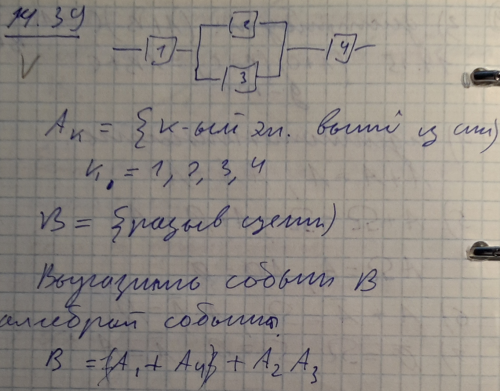 14.39
2
1
3
4
Aк = {к-ый эл. вышел из ст}
к = 1, 2, 3, 4
B = {разрыв цепи}
Выразить событи B
алгеброй событий
B = {A₁ + A₄} + A₂A₃